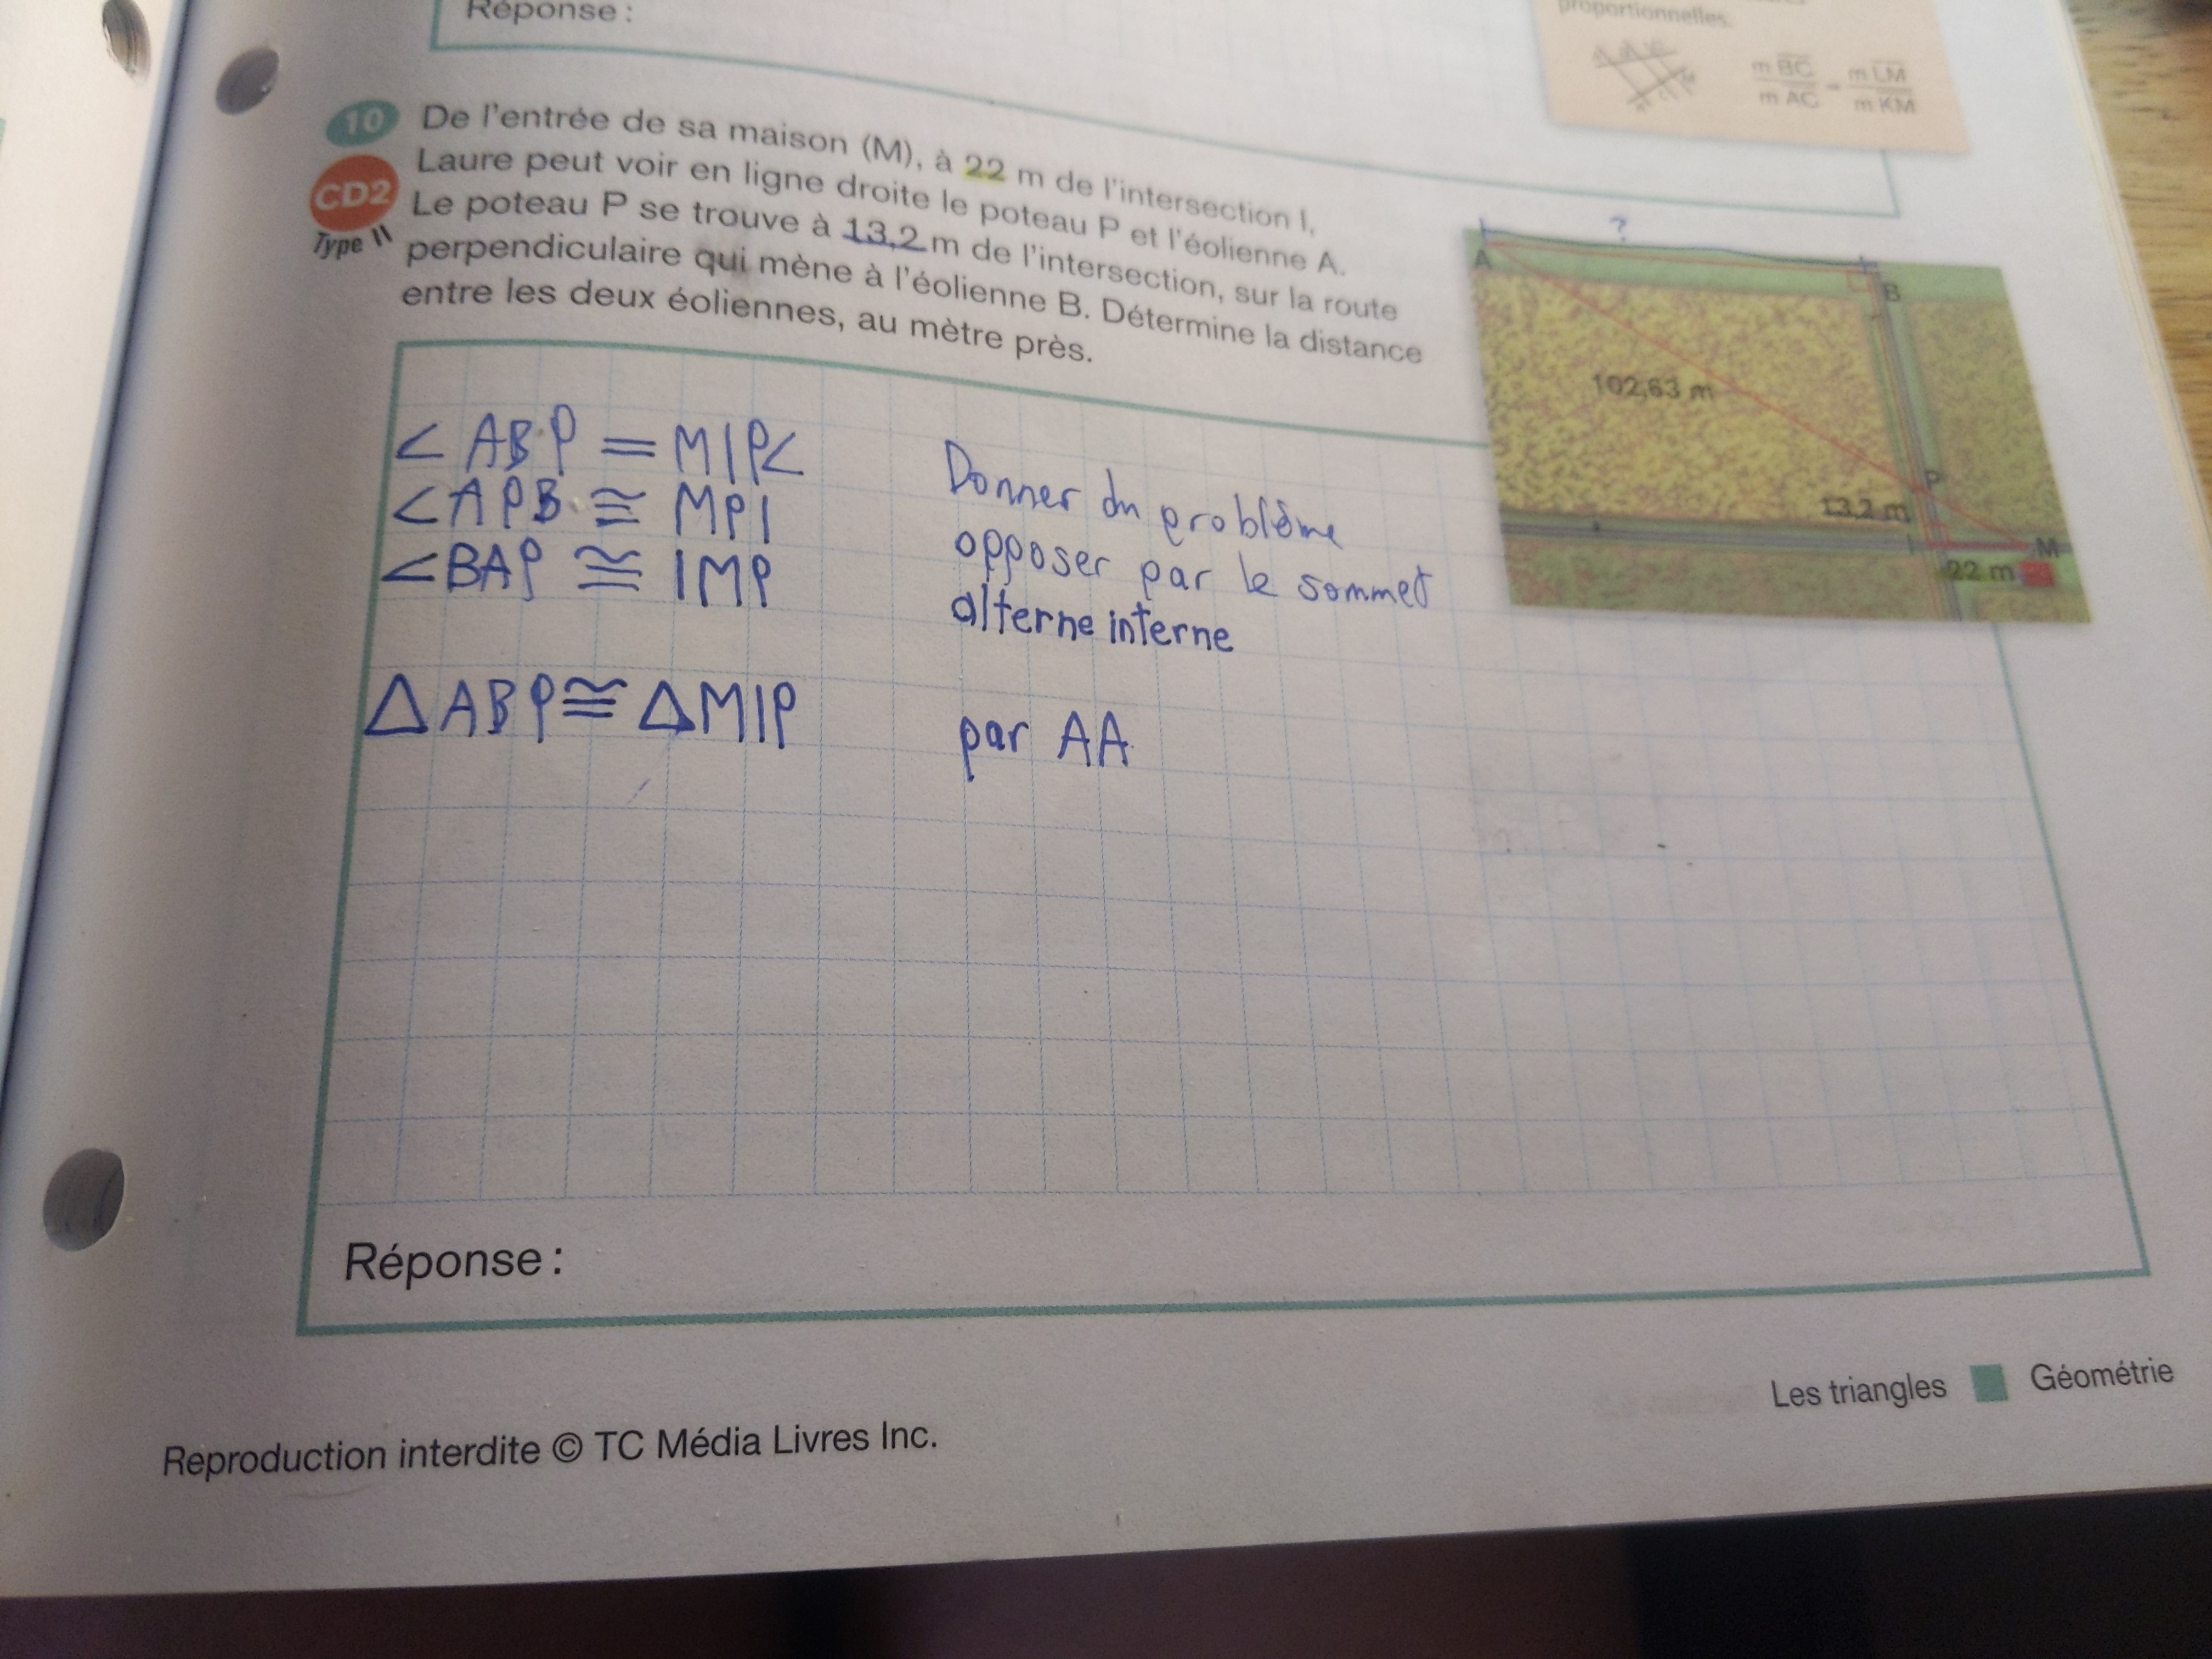 Réponse :
proportionnelles.
m BC
m AC
=
m LM
m KM
10
De l'entrée de sa maison (M), à 22 m de l'intersection I,
CD2
Laure peut voir en ligne droite le poteau P et l'éolienne A.
Type II
Le poteau P se trouve à 13,2 m de l'intersection, sur la route
perpendiculaire qui mène à l'éolienne B. Détermine la distance
entre les deux éoliennes, au mètre près.
?
A
B
102,63 m
P
13,2 m
I
M
22 m
< ABP = MIP<
Donner du problème
< APB ≅ MPI
opposer par le sommet
< BAP ≅ IMP
alterne interne
△ ABP ≅ △MIP
par AA
Réponse :
Les triangles ■ Géométrie
Reproduction interdite © TC Média Livres Inc.